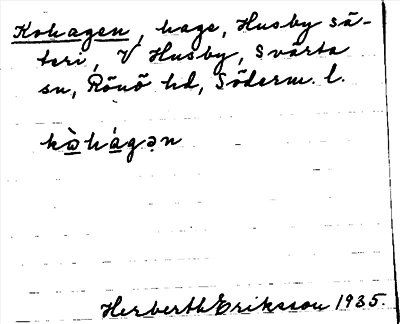 Kohagen, hage, Husby sä-
teri, V Husby, Svärta
sn, Rönö hd, Söderm. l.
kὼhágən
Herberth Eriksson 1935.